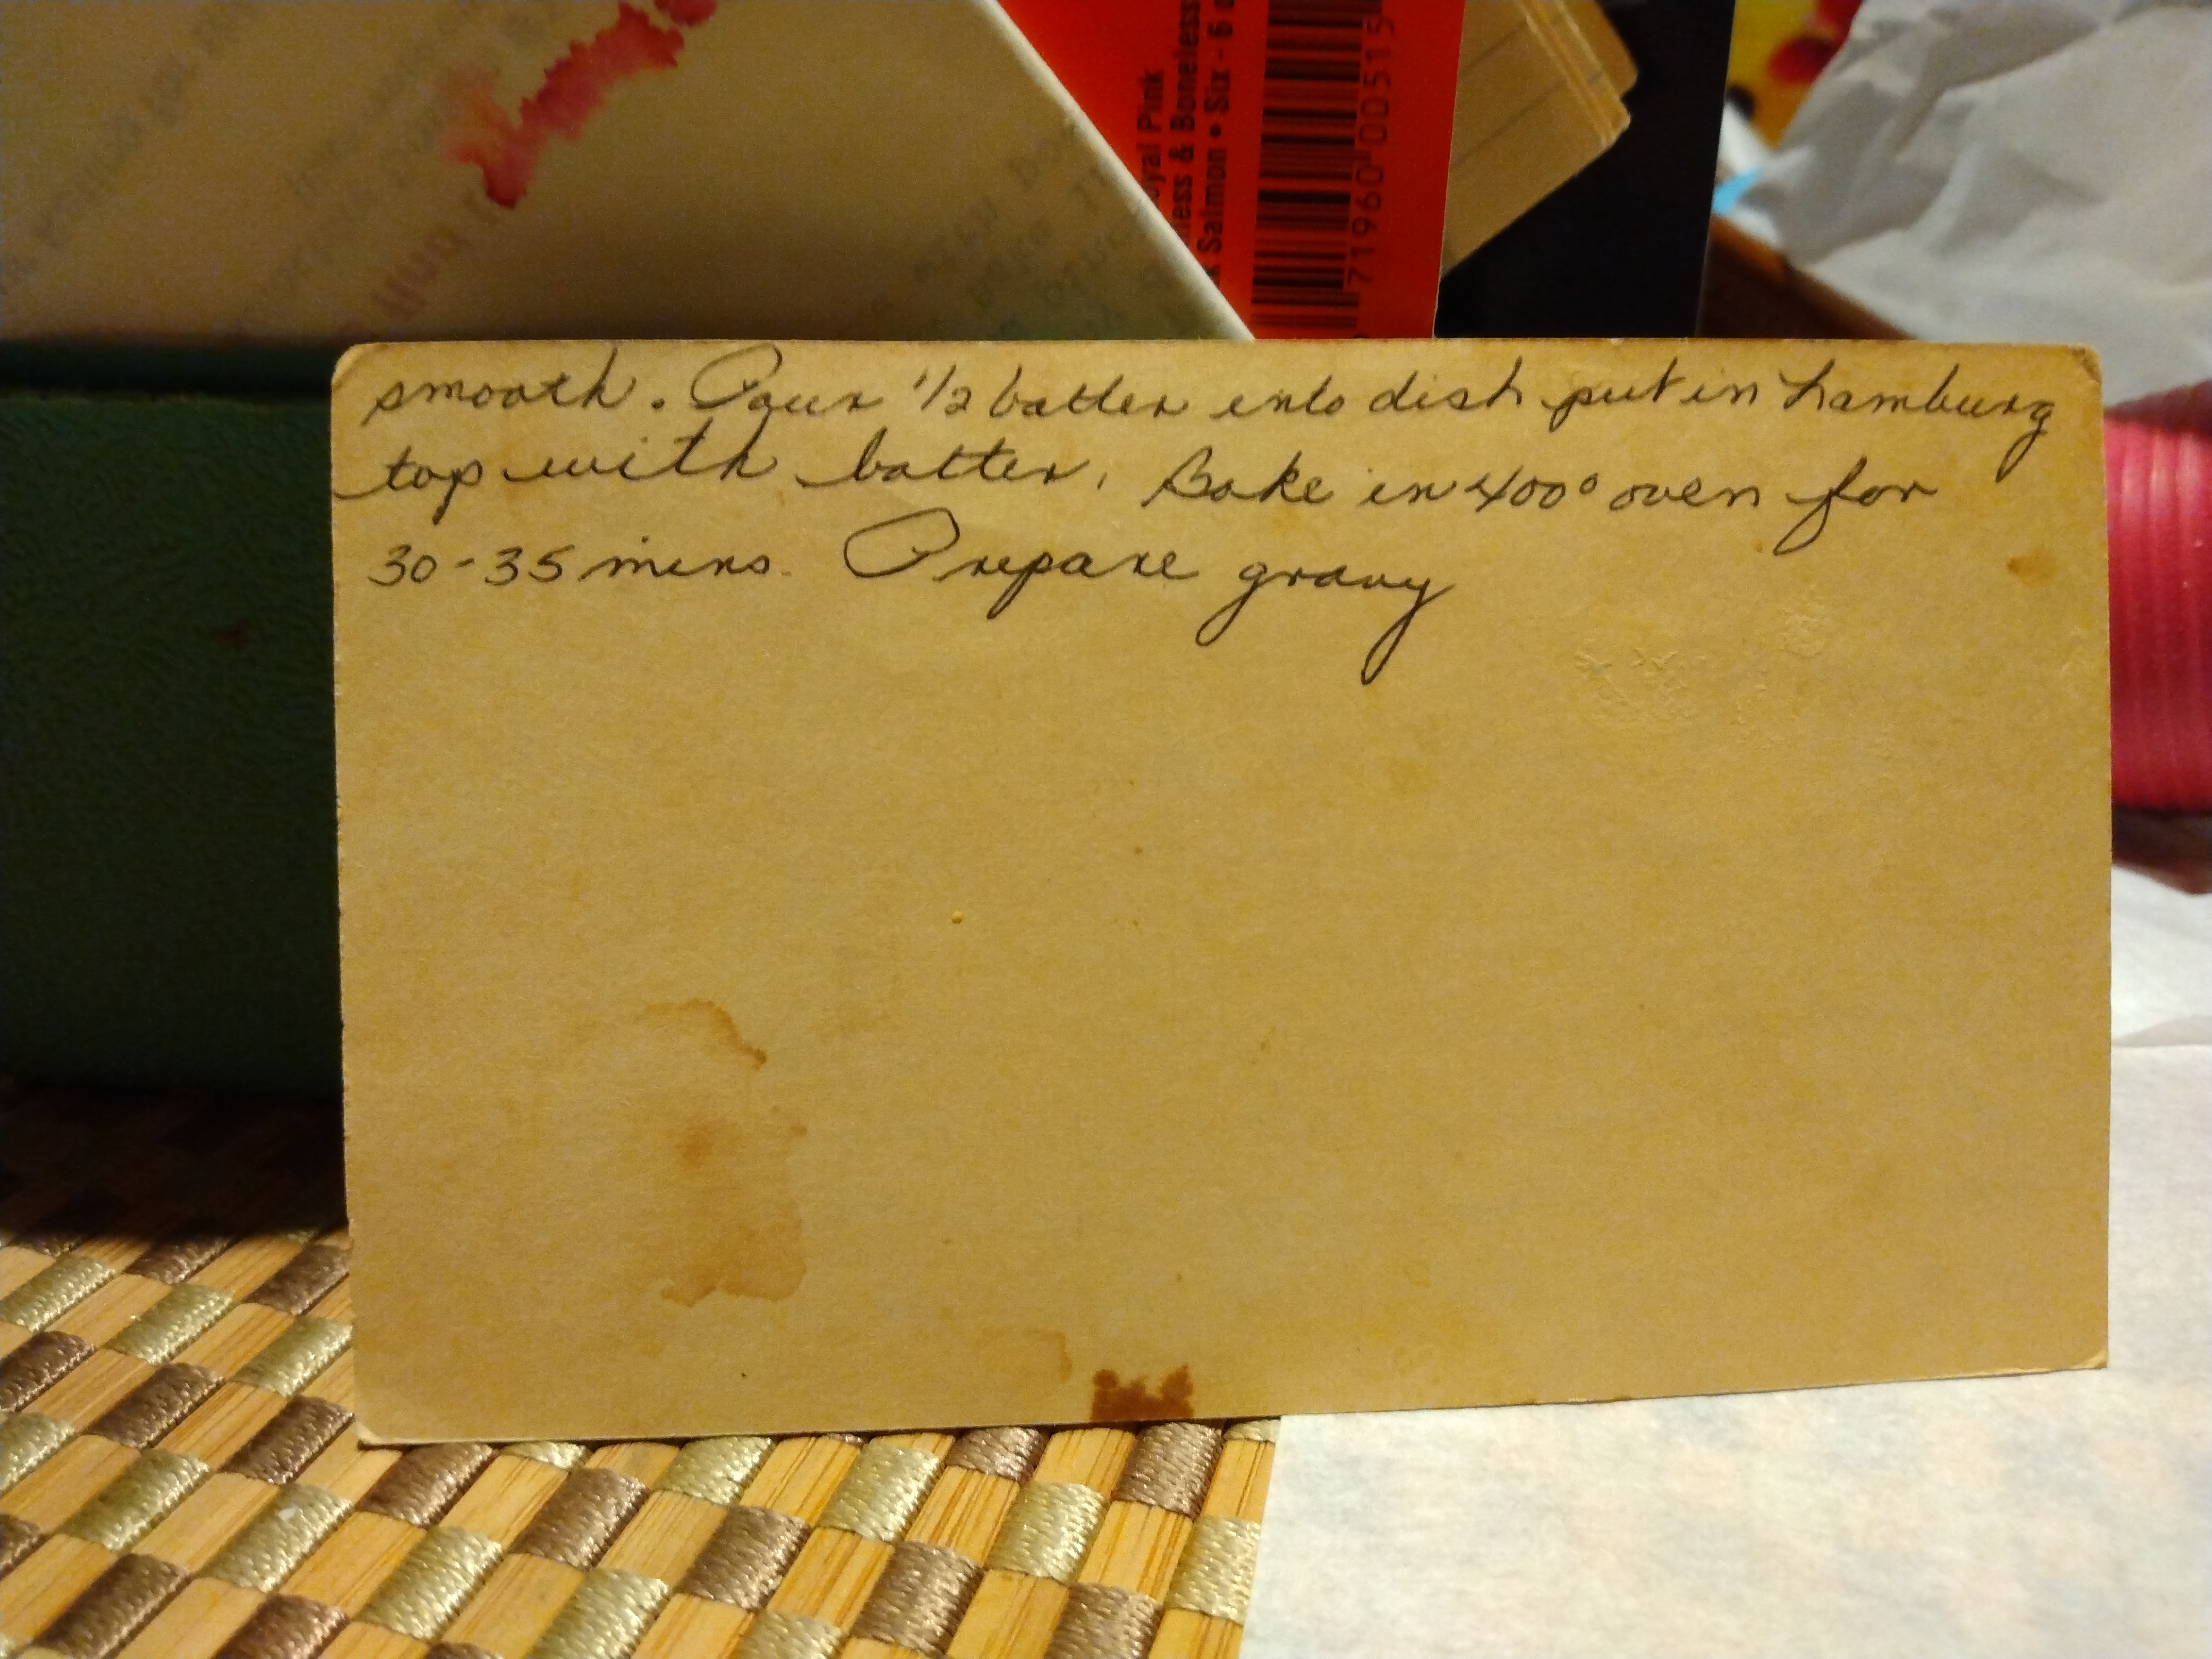 Royal Pink
& Boneless
Salmon • Six - 6
71960 00515
smooth. Pour 1/2 batter into dish put in hamburg
top with batter. Bake in 400° oven for
30-35 mins. Prepare gravy